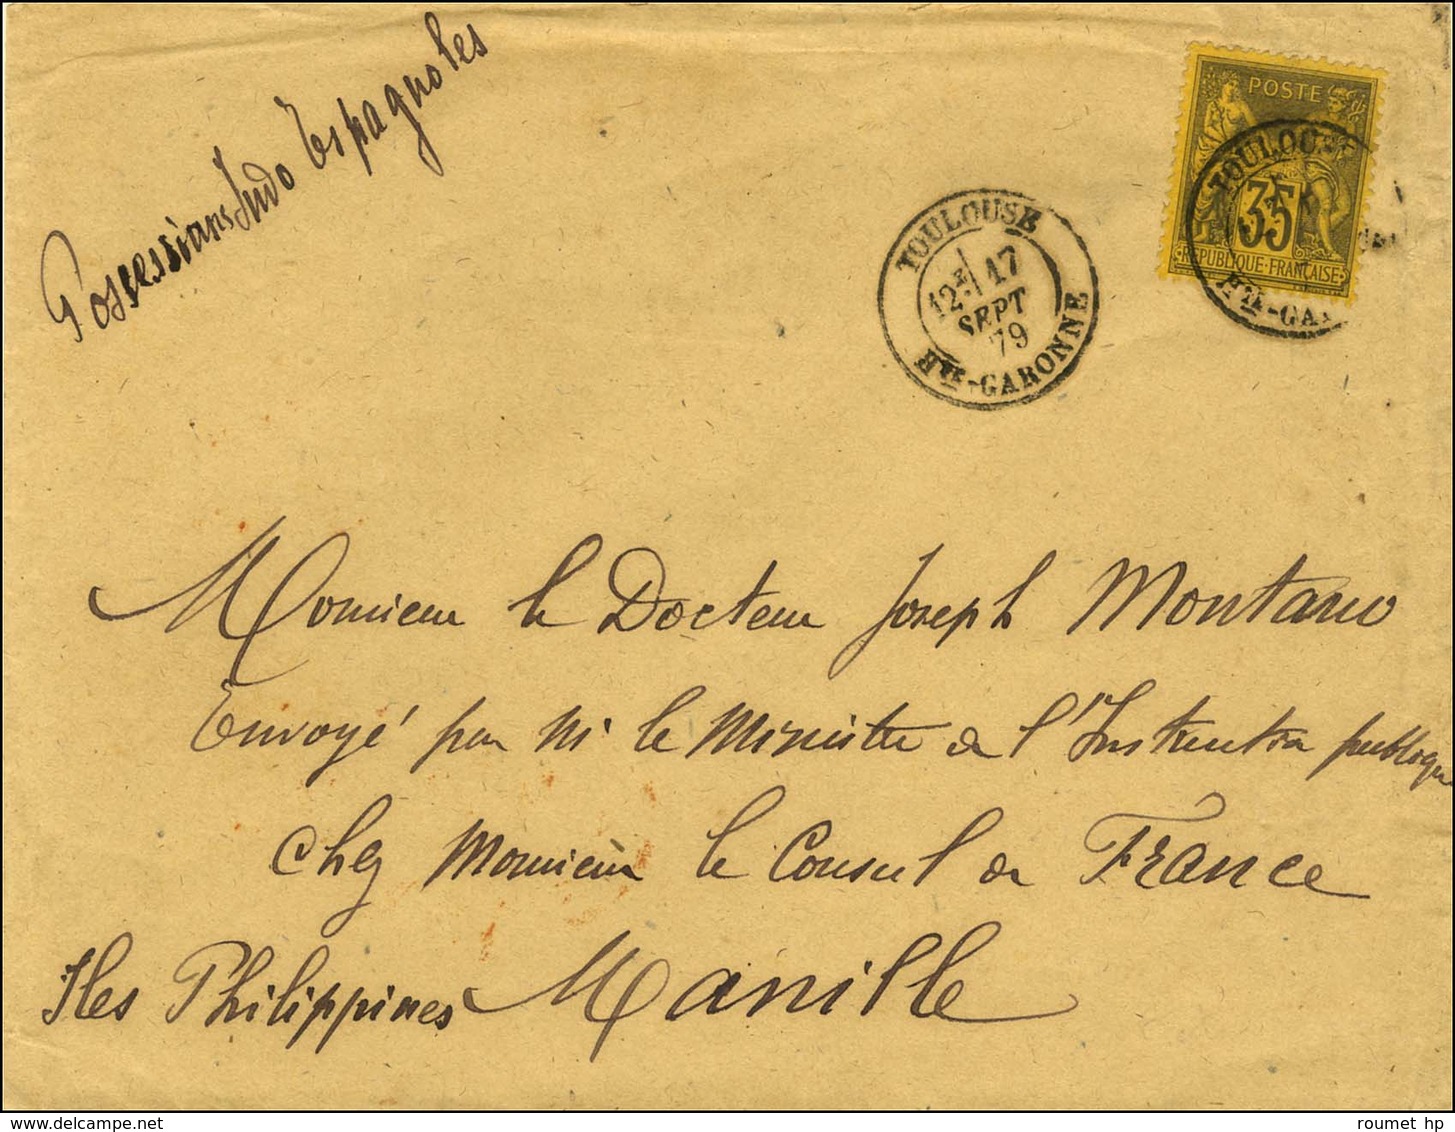 Possessions Indo Espagnoles
POSTE
35
REPUBLIQUE FRANÇAISE
TOULOUSE
Hte-GA
TOULOUSE
12E 17
SEPT
79
Hte-GARONNE
Monsieur le Docteur Joseph Montano
Envoyé par M le Ministre de l'Instruction publique
chez Monsieur le Consul de France
Iles Philippines Manille
roumet hp